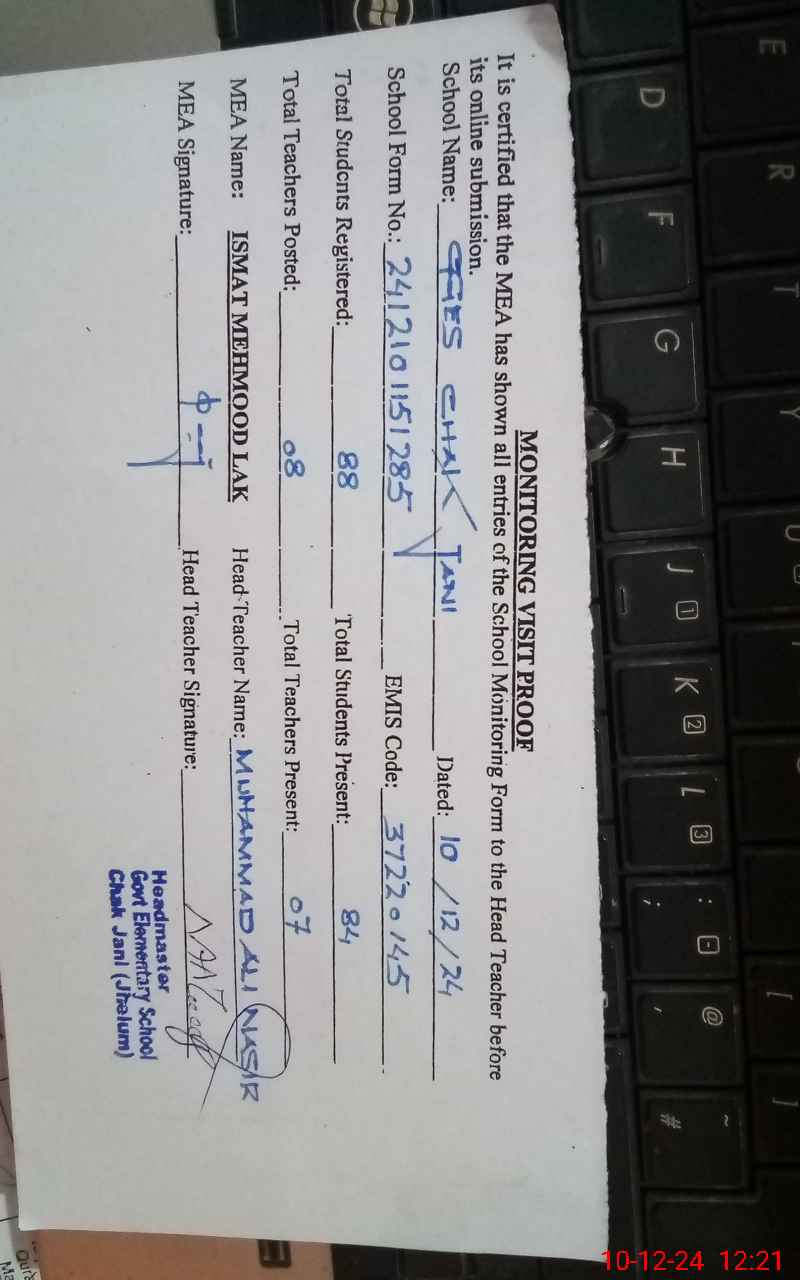 MONITORING VISIT PROOF
It is certified that the MEA has shown all entries of the School Monitoring Form to the Head Teacher before
its online submission.
School Name: GGES CHAK JANI Dated: 10/12/24
School Form No.: 2412101151285 EMIS Code: 37220145
Total Students Registered: 88 Total Students Present: 84
Total Teachers Posted: 08 Total Teachers Present: 07
MEA Name: ISMAT MEHMOOD LAK Head Teacher Name: MUHAMMAD ALI NASIR
MEA Signature: Head Teacher Signature:
Headmaster
Govt Elementary School
Chak Jani (Jhelum)
E R T Y U [ ]
D F G H J 1 K 2 L 3 : ; - @ ' ~ #
10-12-24 12:21